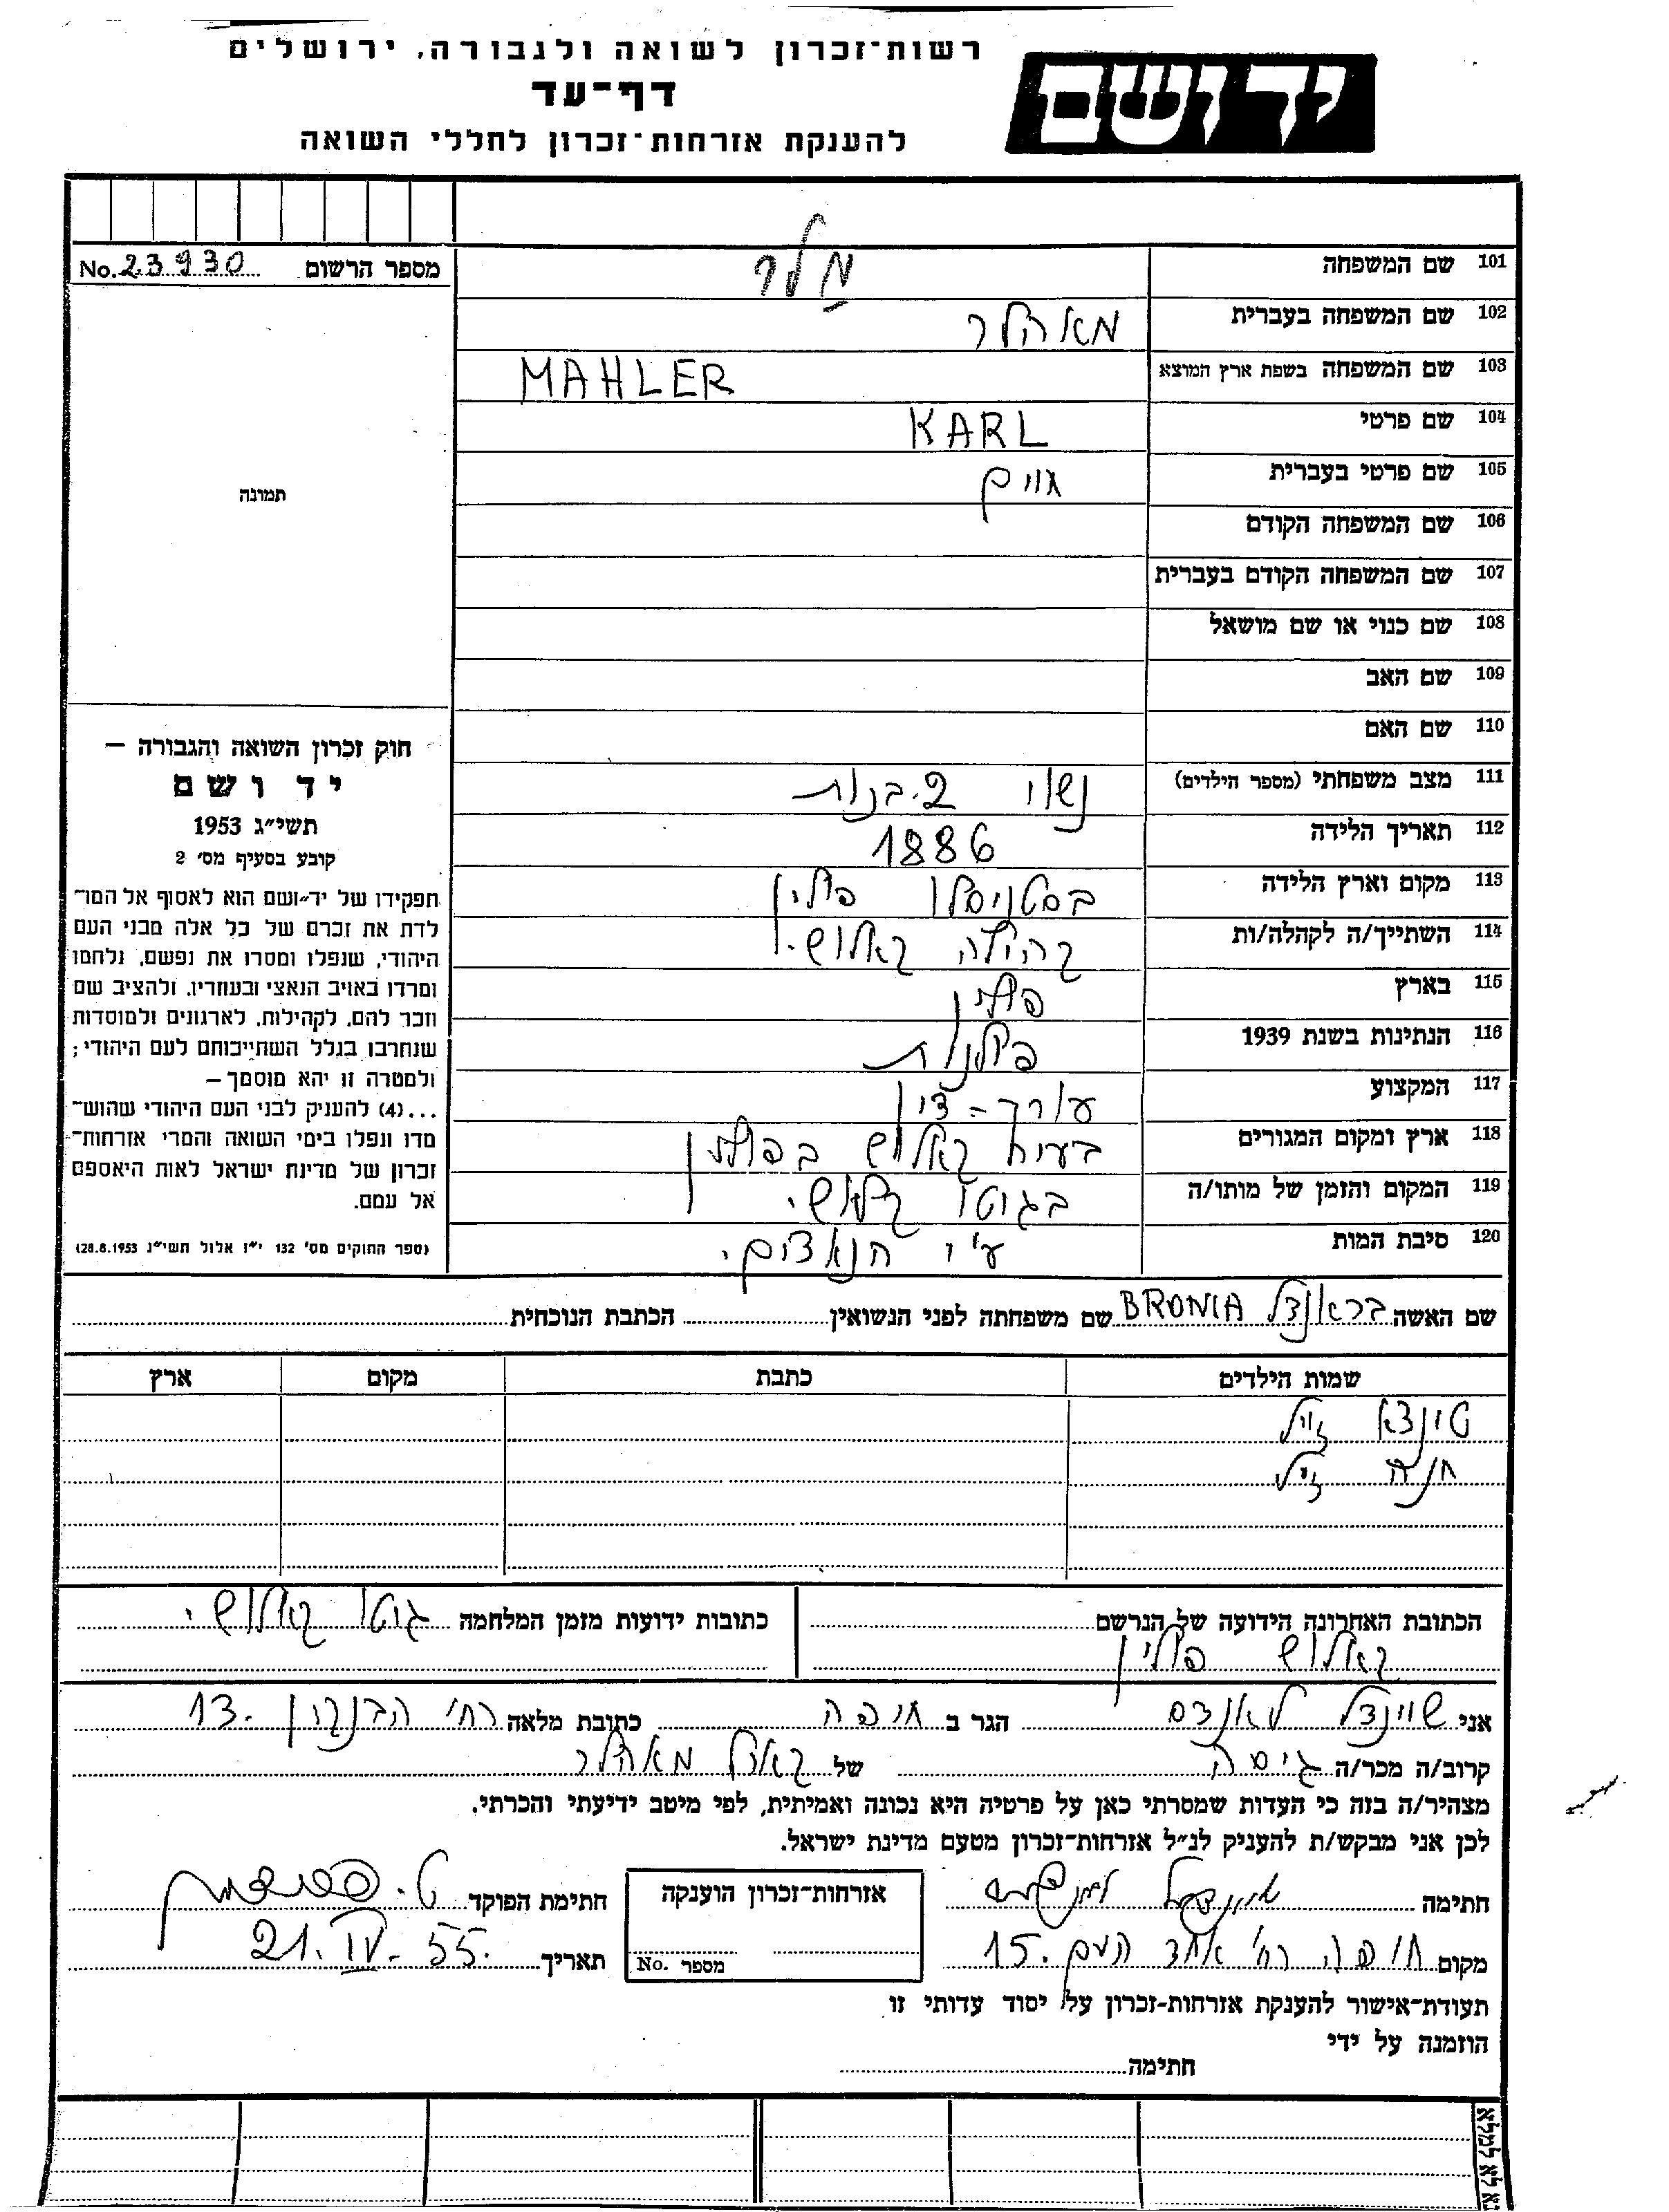 רשות־זכרון לשואה ולגבורה, ירושלים
דף־עד
להענקת אזרחות־זכרון לחללי השואה
יד ושם
מספר הרשום No. 23930
101 שם המשפחה מלר
102 שם המשפחה בעברית מאהלר
103 שם המשפחה בשפת ארץ המוצא MAHLER
104 שם פרטי KARL
105 שם פרטי בעברית
106 שם המשפחה הקודם
107 שם המשפחה הקודם בעברית
108 שם כנוי או שם מושאל
109 שם האב
110 שם האם
111 מצב משפחתי (מספר הילדים) נשוי 2 בנות
112 תאריך הלידה 1886
113 מקום וארץ הלידה בסטניסלו פולין
114 השתייך/ה לקהלה/ות קהילה קאלוש.
115 בארץ פולין
116 הנתינות בשנת 1939 פולנית
117 המקצוע עורך-דין
118 ארץ ומקום המגורים בעיר קאלוש בפולין
119 המקום והזמן של מותו/ה בגוטו קלוש.
120 סיבת המות ע"י הנאצים.
תמונה
חוק זכרון השואה והגבורה –
יד ושם
תשי״ג 1953
קובע בסעיף מס׳ 2
תפקידו של יד־ושם הוא לאסוף אל המו־
לדת את זכרם של כל אלה מבני העם
היהודי, שנפלו ומסרו את נפשם, נלחמו
ומרדו באויב הנאצי ובעוזריו, ולהציב שם
וזכר להם, לקהילות, לארגונים ולמוסדות
שנחרבו בגלל השתייכותם לעם היהודי;
ולמטרה זו יהא מוסמך –
...(4) להעניק לבני העם היהודי שהוש־
מדו ונפלו בימי השואה והמרי אזרחות־
זכרון של מדינת ישראל לאות היאספם
אל עמם.
(ספר החוקים מס׳ 132 י״ז אלול תשי״ג 28.8.1953)
שם האשה בראנצל BRONIA שם משפחתה לפני הנשואין הכתבת הנוכחית
שמות הילדים כתבת מקום ארץ
טונצא ז"ל
חנה ז"ל
הכתובת האחרונה הידועה של הנרשם
קאלוש פולין
כתובות ידועות מזמן המלחמה גוטו קאלוש.
אני שיינצל לאנדס הגר ב חיפה כתובת מלאה רח' הבנקון 13.
קרוב/ה מכר/ה גיסה של קארל מאהלר
מצהיר/ה בזה כי העדות שמסרתי כאן על פרטיה היא נכונה ואמיתית, לפי מיטב ידיעתי והכרתי.
לכן אני מבקש/ת להעניק לנ״ל אזרחות־זכרון מטעם מדינת ישראל.
חתימה
אזרחות־זכרון הוענקה
מספר No.
חתימת הפוקד
מקום חיפה רח' אחד העם 15.
תאריך 21. IV. 55.
תעודת־אישור להענקת אזרחות־זכרון על יסוד עדותי זו
הוזמנה על ידי
חתימה
נא לא למלא